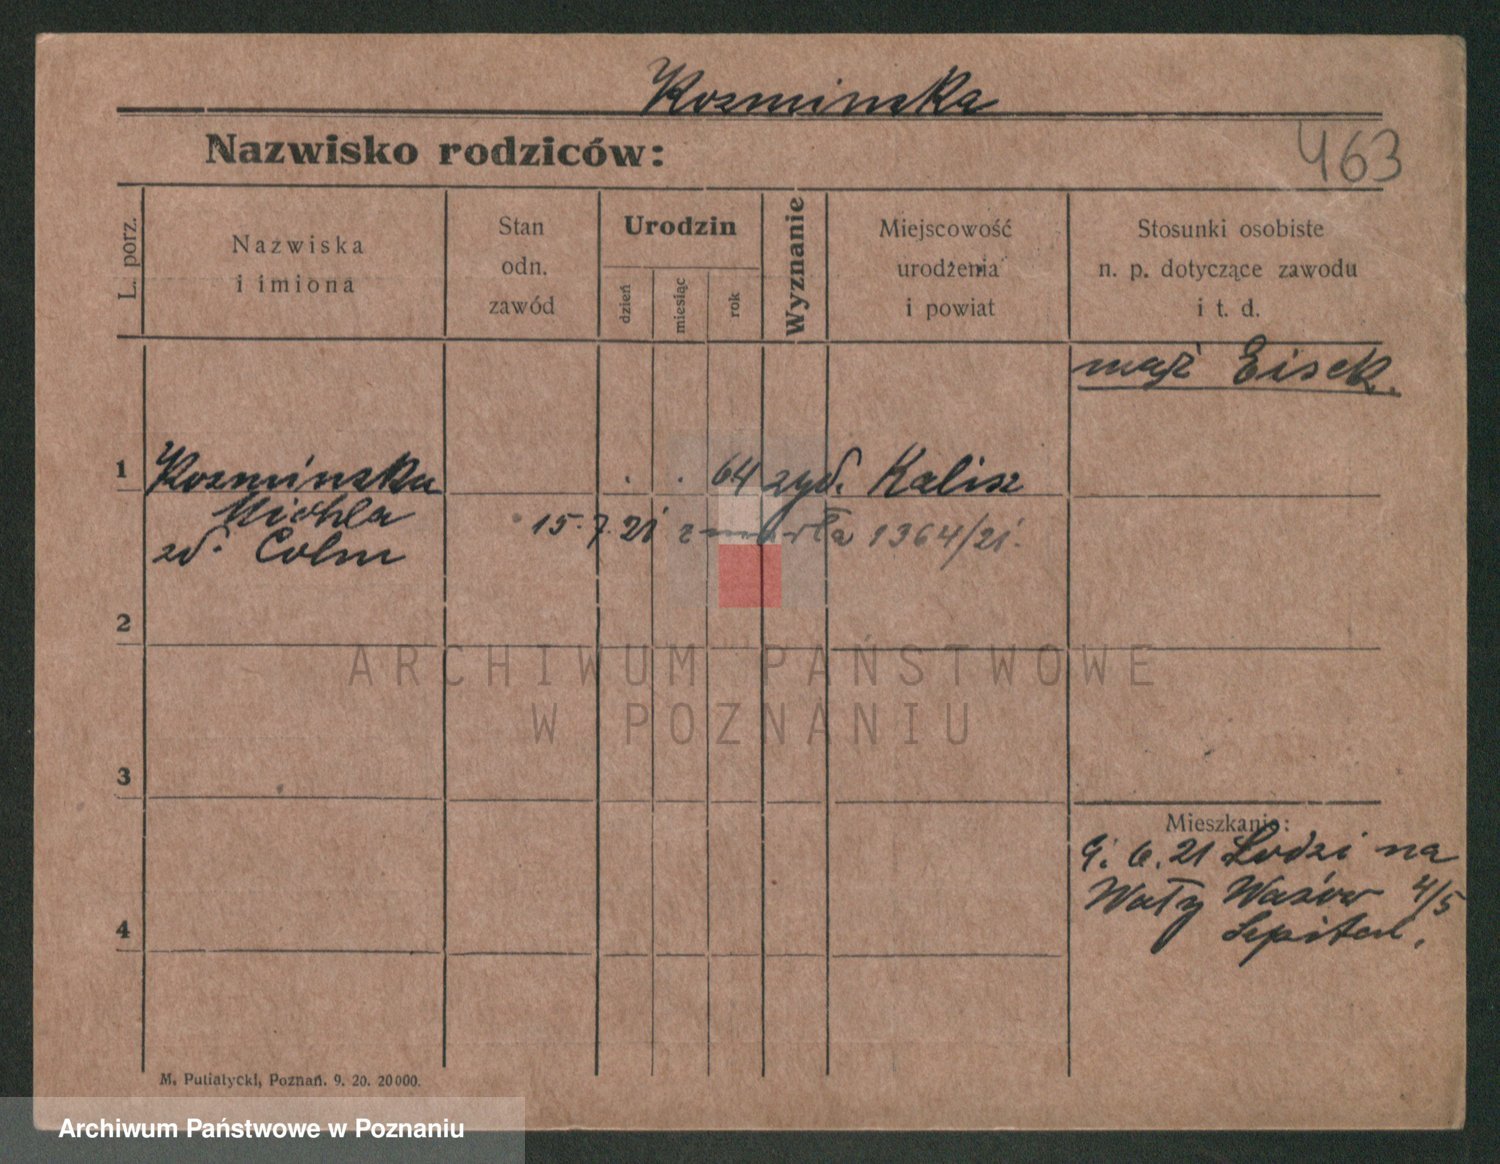 Kozminska
Nazwisko rodziców:
463
L. porz.
Nazwiska
i imiona
Stan
odn.
zawód
Urodzin
dzień
miesiąc
rok
Wyznanie
Miejscowość
urodzenia
i powiat
Stosunki osobiste
n. p. dotyczące zawodu
i t. d.
mąż Eisek.
1
Kozminska
64
żyd.
Kalisz
Michla
15. 7. 21 zmarła 1364/21.
zd. Colm
2
ARCHIWUM PAŃSTWOWE
W POZNANIU
3
Mieszkanie:
9. 6. 21 Łodzi na
Wały Wazów 4/5
Szpital.
4
M. Putiatycki, Poznań. 9. 20. 20000.
Archiwum Państwowe w Poznaniu